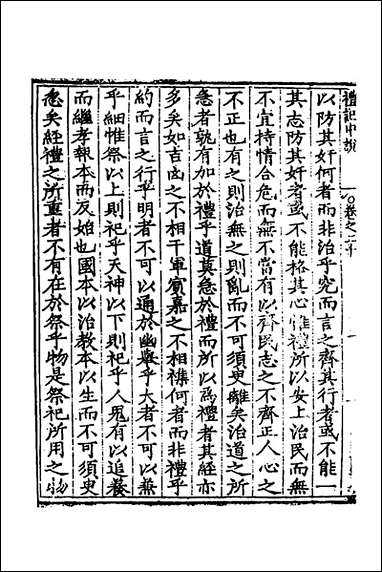 禮記中說 卷之二十
以防其奸何者而非治乎究而言之齊其行者或不能一
其志防其奸者或不能格其心惟禮所以安上治民而無
不宜持情合危而無不當有以齊民志之不齊正人心之
不正也有之則治無之則亂而不可須臾離矣治道之所
急者孰有加於禮乎道莫急於禮而所以為禮者其經亦
多矣如吉凶之不相干軍賔嘉之不相襍何者而非禮乎
約而言之行乎明者不可以通於幽與乎大者不可以兼
乎細惟祭以上則祀乎天神以下則祀乎人鬼有以追養
而繼孝報本而反始也國本以治教本以生而不可須臾
忽矣經禮之所重者不有在於祭乎物是祭祀所用之物